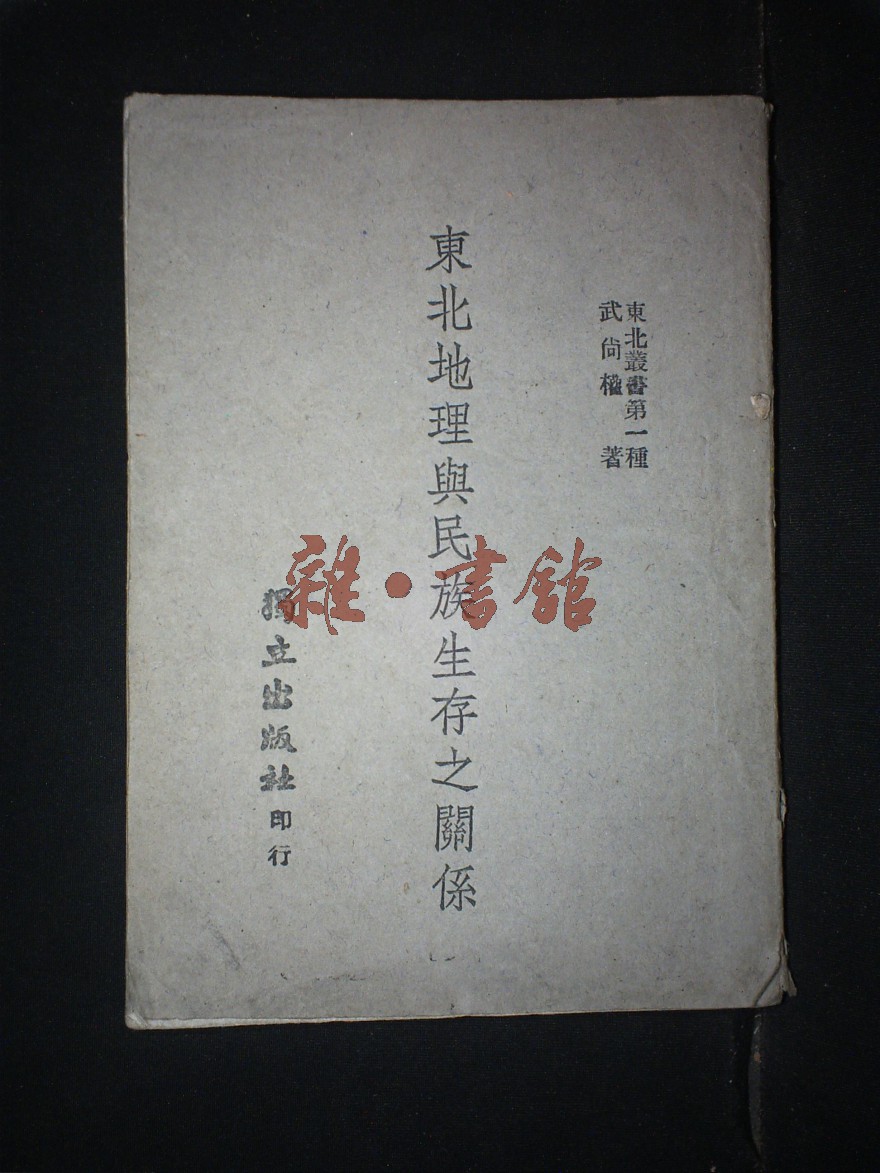 東北叢書第一種
武尙權 著
東北地理與民族生存之關係
獨立出版社印行
雜·書館